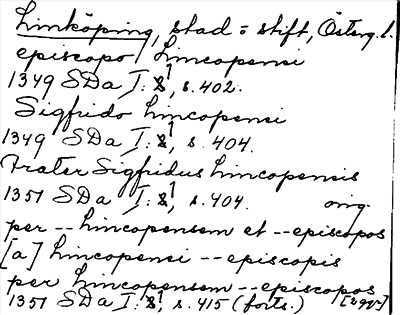 Linköping, stad o. stift, Österg. l.
episcopo Lincopensi
1349 SDa I:1, s. 402.
Sigfrido Lincopensi
1349 SDa I:1, s. 404.
Frater Sigfridus Lincopensis
1351 SDa I:1, s. 404. orig.
per -- Lincopensem et -- episcopos
[a] Lincopensi -- episcopis
per Lincopensem -- episcopos
1351 SDa I:1, s. 415 (forts.)